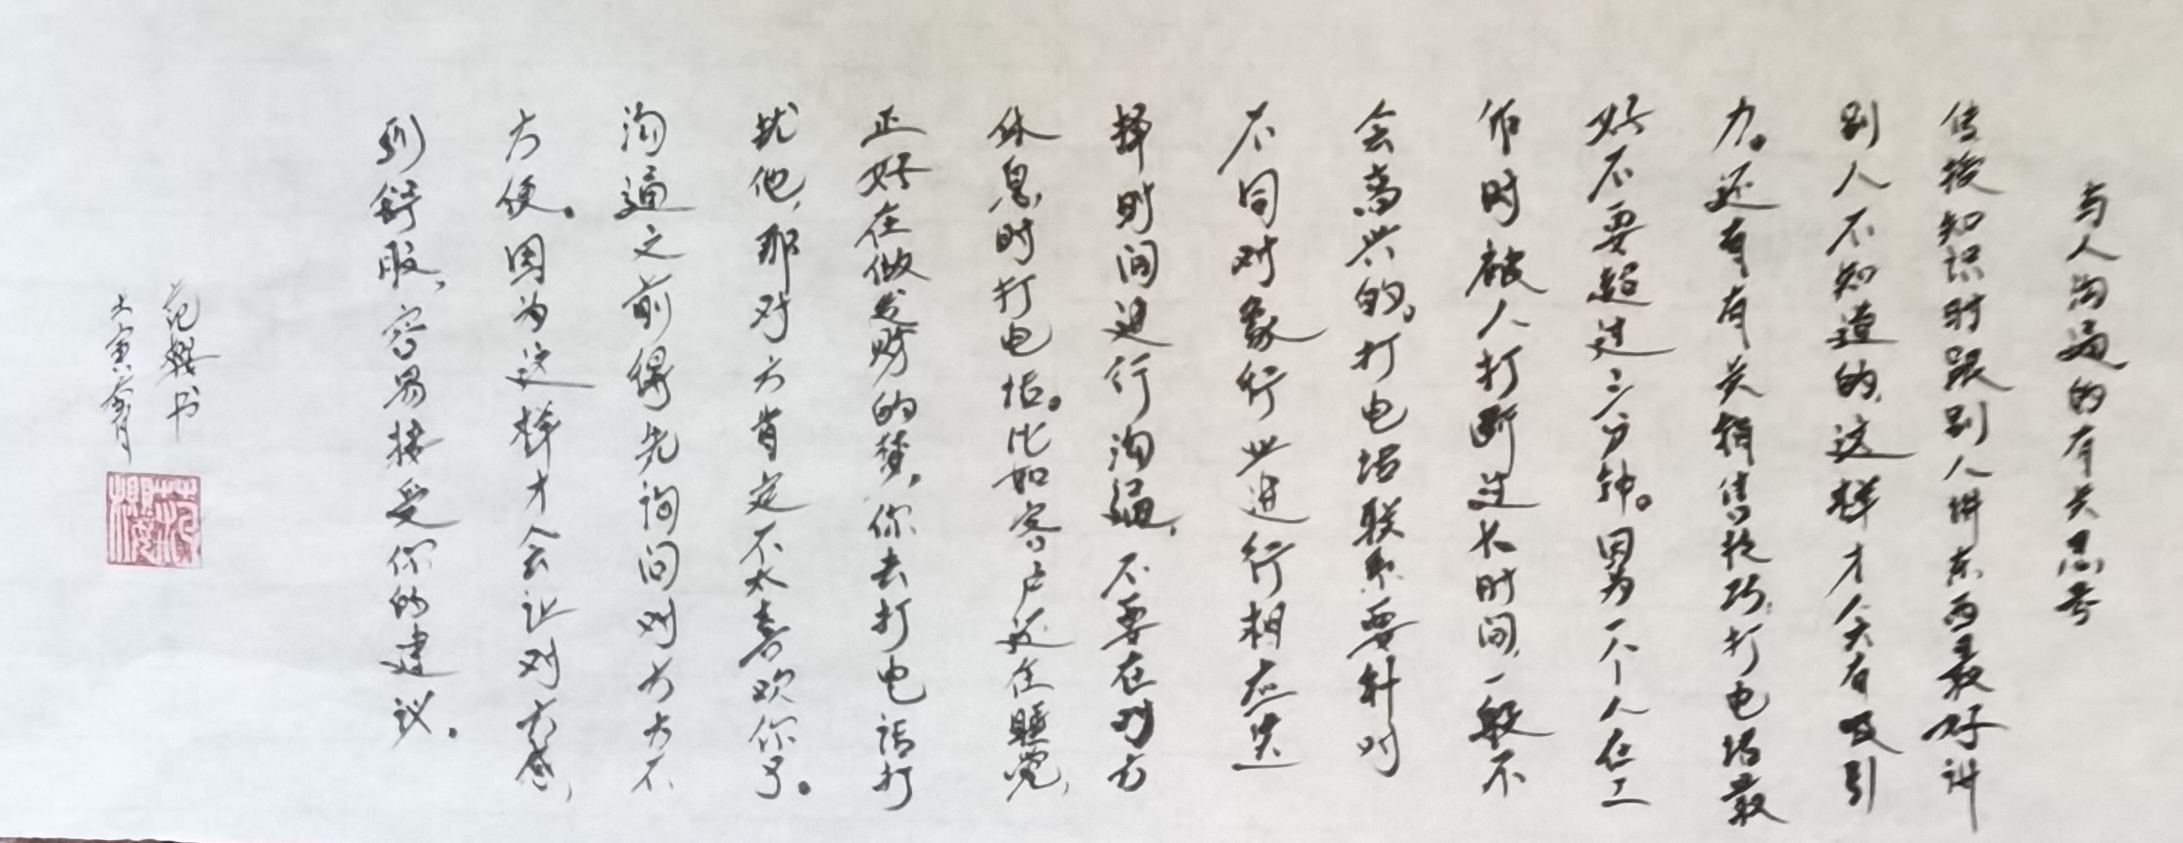 与人沟通的有关思考
传授知识时跟别人讲东西最好讲
别人不知道的，这样才会有吸引
力。还有有关销售技巧，打电话最
好不要超过三分钟。因为一个人在工
作时被人打断过长时间，一般不
会高兴的，打电话联系要针对
不同对象行业进行相应选
择时间进行沟通，不要在对方
休息时打电话。比如客户还在睡觉，
正好在做发财的梦，你去打电话打
扰他，那对方肯定不太喜欢你了。
沟通之前得先询问对方方不
方便。因为这样才会让对方感，
到舒服，容易接受你的建议。
范樱书